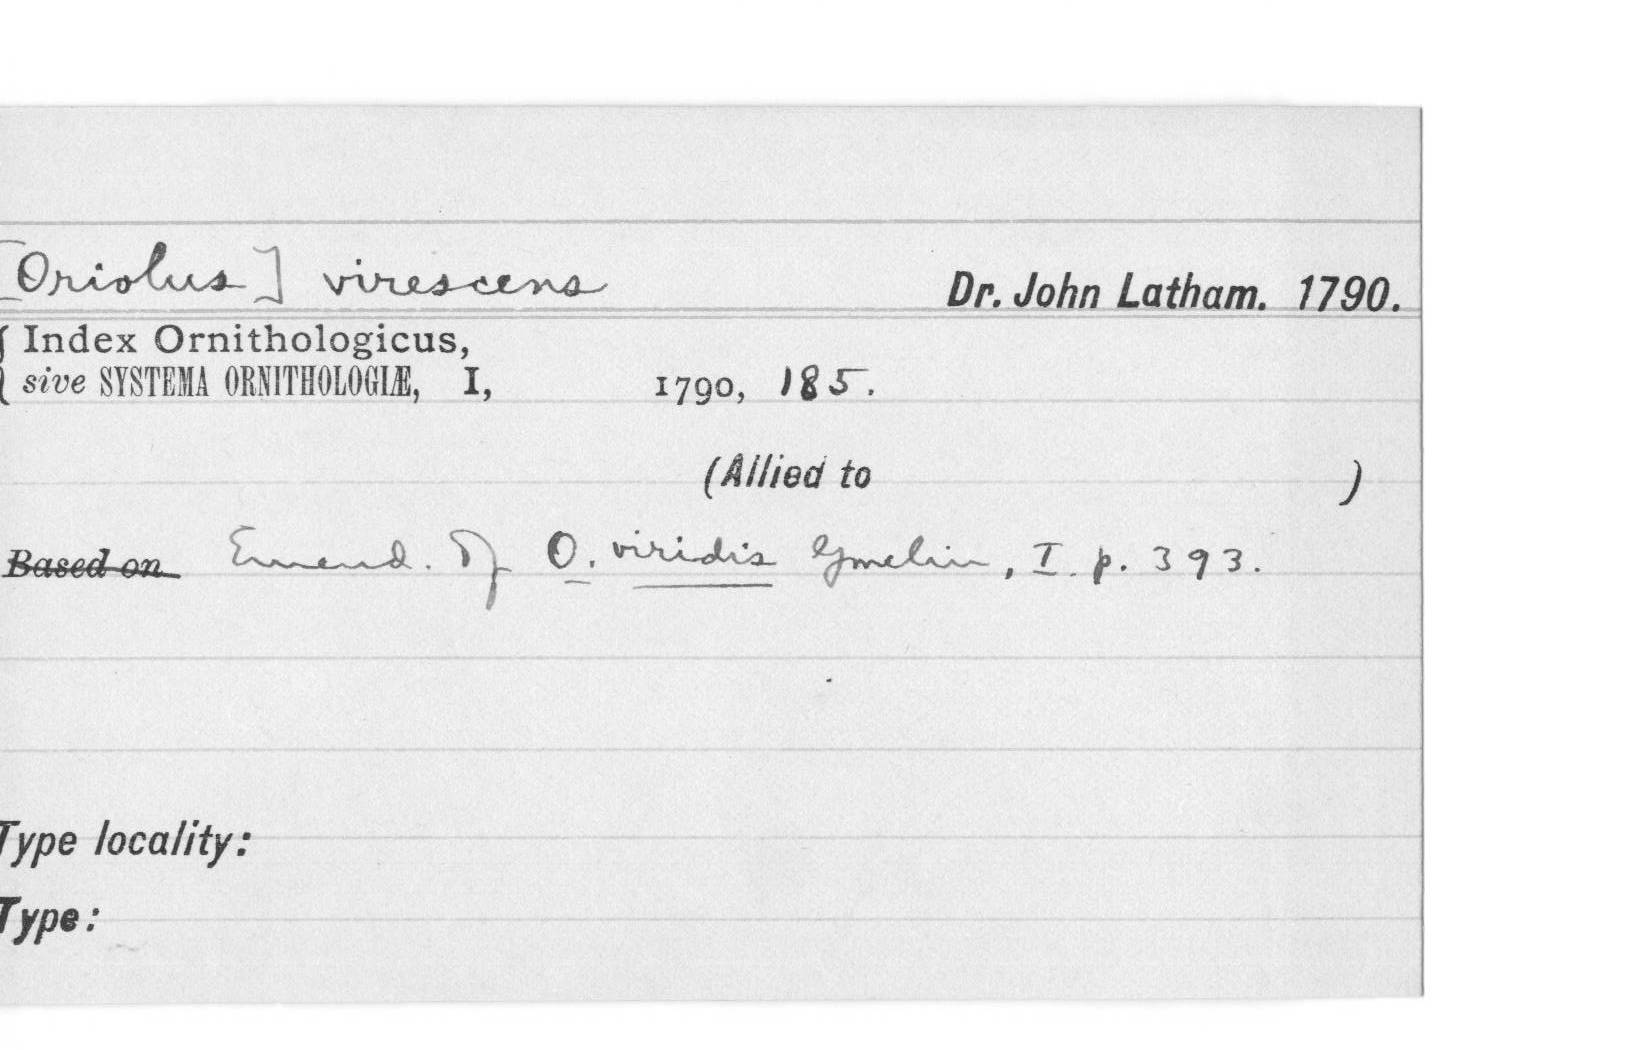 [Oriolus] virescens Dr. John Latham. 1790.
{ Index Ornithologicus,
sive SYSTEMA ORNITHOLOGIÆ, I, 1790, 185.
(Allied to )
Based on Emend. Of O. viridis Gmelin, I. p. 393.
Type locality:
Type: